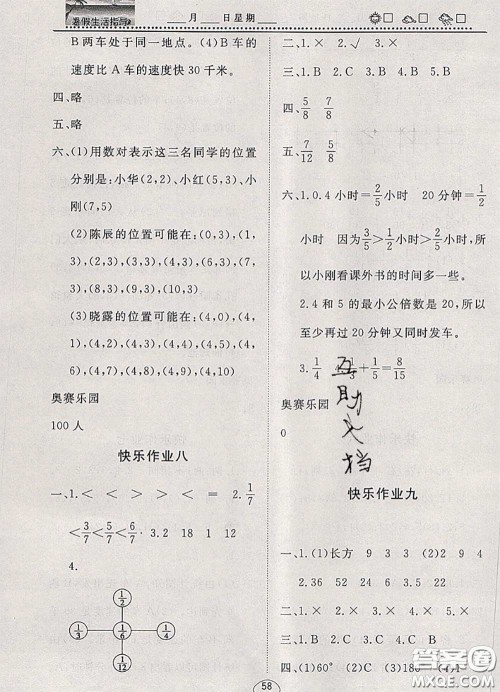 暑假生活指导
月 日星期
B两车处于同一地点。(4)B车的
速度比A车的速度快30千米。
四、略
五、略
六、(1)用数对表示这三名同学的位置
分别是:小华(2,2)、小红(5,3)、小
刚(7,5)
(2)陈辰的位置可能在:(0,3),(1,
3),(2,3),(3,3),(4,3),(5,3),(6,
3),(7,3),(8,3),(9,3),(10,3)
(3)晓露的位置可能在:(4,0),(4,
1),(4,2),(4,3),(4,4),(4,5),(4,
6),(4,7),(4,8),(4,9),(4,10)
奥赛乐园
100人
快乐作业八
一、1.< < > > < = 2.1/7
<3/7<5/7<6/7. 3.2 18 1 12
4.
1/2
1/4 1/6 1/3
1/12
二、1.× 2.× 3.× 4.× 5.√
三、1.B 2.C 3.B 4.C
四、5/8 7/8
五、7/12 5/8
六、1.0.4小时=2/5小时 20分钟=1/2
小时 因为3/5>1/2小时>2/5小时,
所以小刚看课外书的时间多一些。
2.4和5的最小公倍数是20,所以
至少再过20分钟又同时发车。
3.1/4 1/3+1/5=8/15
奥赛乐园
0
互助文档
快乐作业九
一、1.(1)长方 9 3 3 (2)2 9 4
2.36 52 24 6 3.5 22
二、1.× 2.× 3.√ 4.√
三、1.B 2.A 3.A 4.B
四、(1)60° (2)C (3)180 (4)1
58
答案圈
MXQE.COM